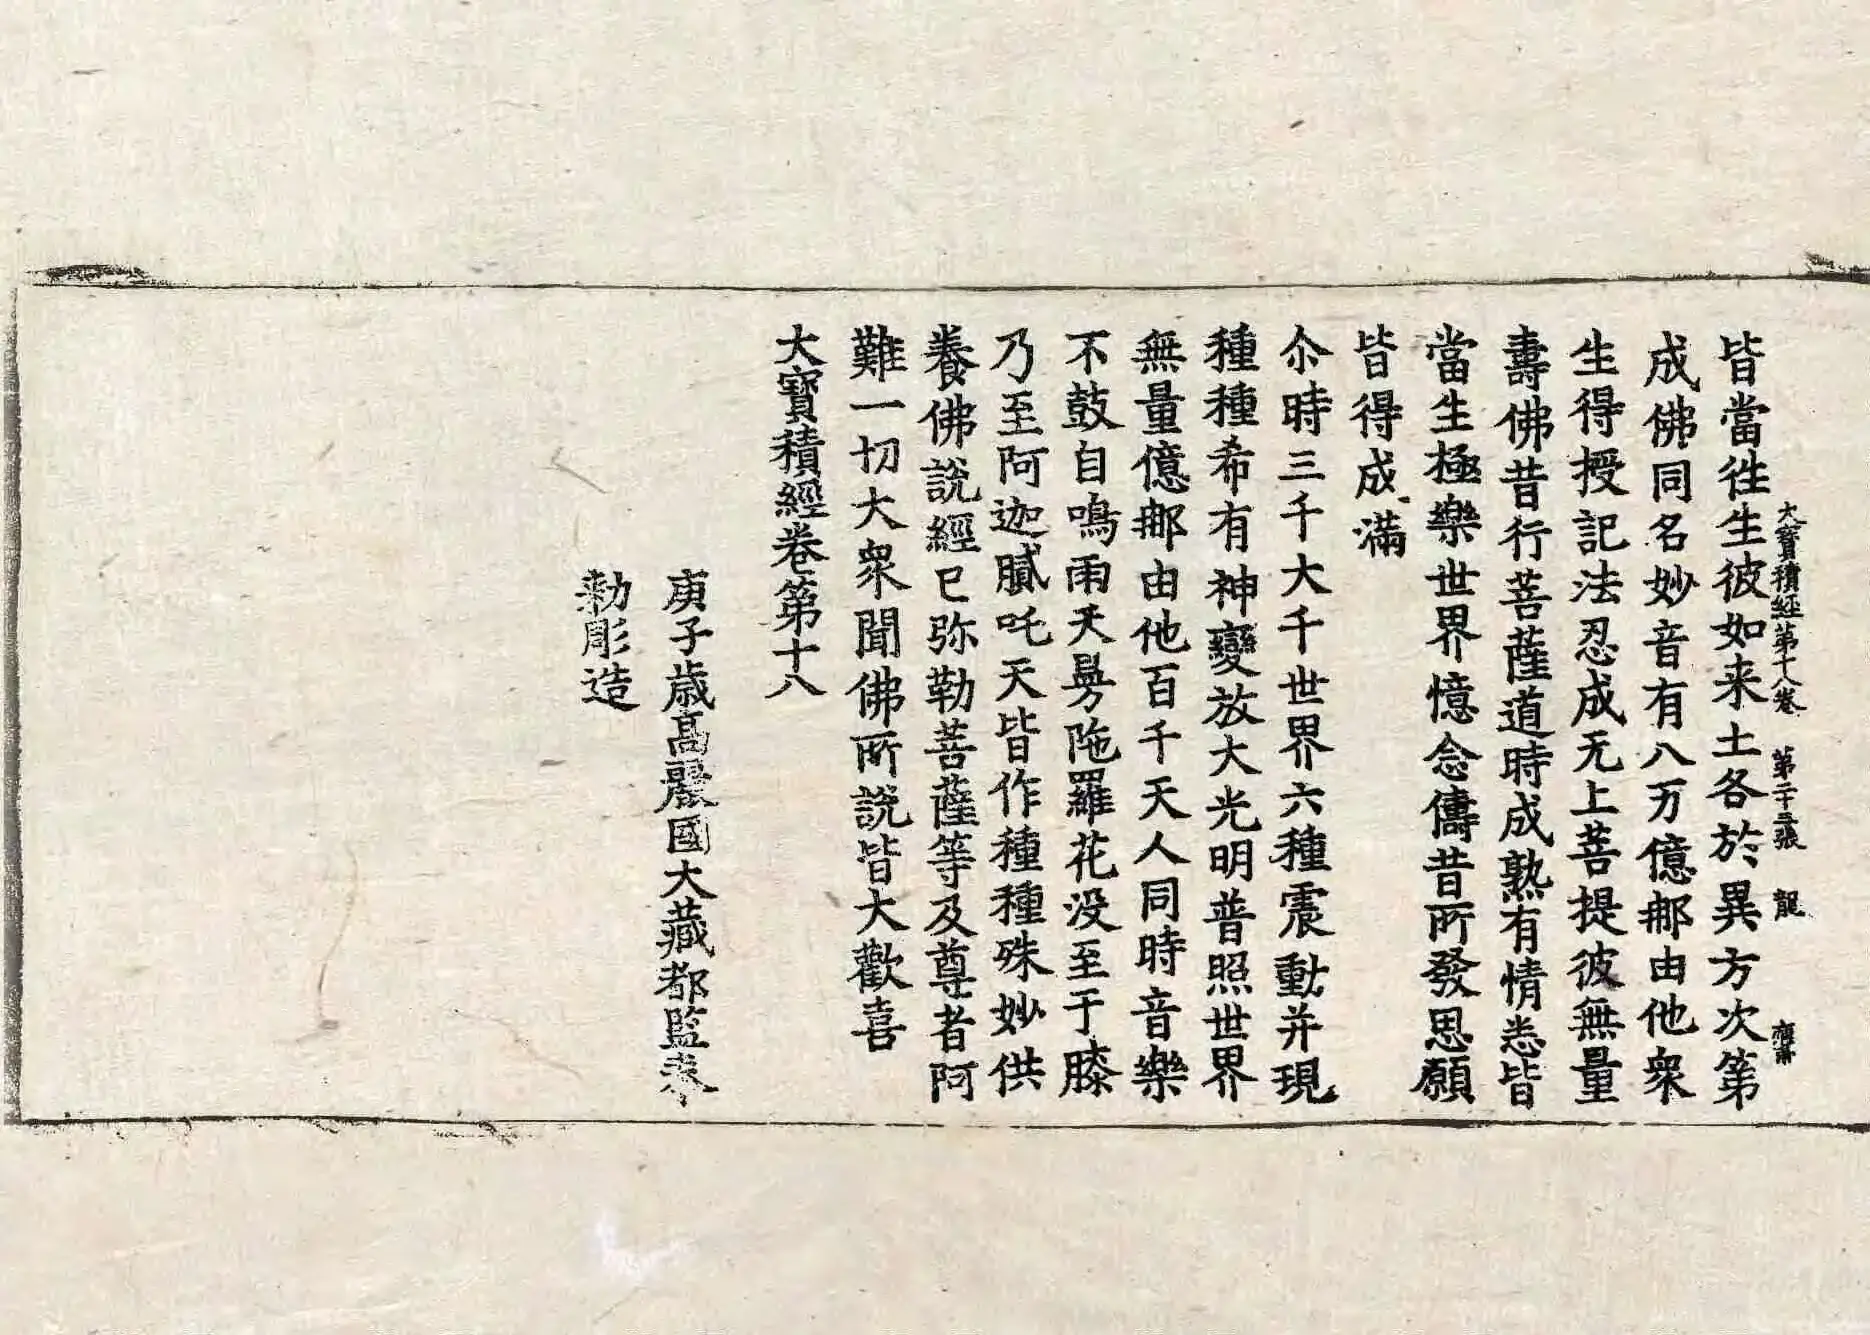 大寶積經第十八卷 第二十三張 龍
皆當徃生彼如来土各於異方次第
成佛同名妙音有八万億𨚗由他衆
生得授記法忍成无上菩提彼無量
壽佛昔行菩薩道時成熟有情悉皆
當生極樂世界憶念儔昔所發思願
皆得成滿
尒時三千大千世界六種震動并現
種種希有神變放大光明普照世界
無量億𨚗由他百千天人同時音樂
不鼓自鳴雨天曼陁羅花没至于膝
乃至阿迦膩吒天皆作種種殊妙供
養佛說經已弥勒菩薩等及尊者阿
難一切大衆聞佛所說皆大歡喜
大寶積經卷第十八
庚子歳高麗國大藏都監奉
勑彫造